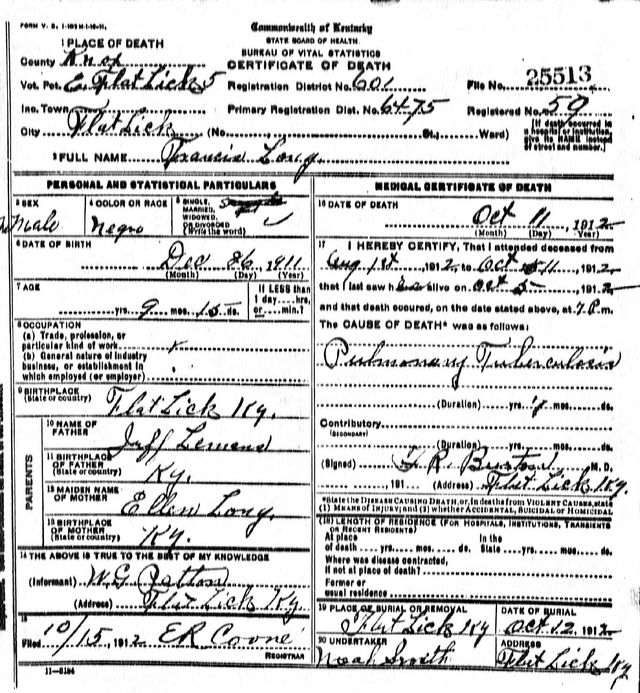 FORM V. S. 1-
Commonwealth of Kentucky
STATE BOARD OF HEALTH.
BUREAU OF VITAL STATISTICS
CERTIFICATE OF DEATH
1 PLACE OF DEATH
County Knox
Vot. Pct. E. Flat Lick 5 Registration District No. 601 File No. 25513
Inc. Town Primary Registration Dist. No. 6475 Registered No. 59
City Flat Lick (No. St.; Ward) [If death occurred in a hospital or institution, give its NAME instead of street and number.]
2 FULL NAME Francis Long
PERSONAL AND STATISTICAL PARTICULARS
3 SEX Male
4 COLOR OR RACE Negro
5 SINGLE, MARRIED, WIDOWED, OR DIVORCED (Write the word)
6 DATE OF BIRTH
Dec 26, 1911
(Month) (Day) (Year)
7 AGE
yrs. 9 mos. 15 ds.
If LESS than 1 day hrs. or min.?
8 OCCUPATION
(a) Trade, profession, or particular kind of work
(b) General nature of industry business, or establishment in which employed (or employer)
9 BIRTHPLACE (State or country) Flat Lick Ky.
PARENTS
10 NAME OF FATHER Jeff
11 BIRTHPLACE OF FATHER (State or country) Ky.
12 MAIDEN NAME OF MOTHER Ellen Long
13 BIRTHPLACE OF MOTHER (State or country) Ky.
14 THE ABOVE IS TRUE TO THE BEST OF MY KNOWLEDGE
(Informant) W.G. Patton
(Address) Flat Lick Ky.
15
Filed 10/15, 1912 E R
REGISTRAR
11-5184
MEDICAL CERTIFICATE OF DEATH
16 DATE OF DEATH
Oct 11, 1912
(Month) (Day) (Year)
17 I HEREBY CERTIFY, That I attended deceased from
Aug 1st, 1912, to Oct 11, 1912,
that I last saw h alive on Oct 5, 1912,
and that death occured, on the date stated above, at 7 P.m.
The CAUSE OF DEATH* was as follows:
Pulmonary Tuberculosis
(Duration) yrs. mos. ds.
Contributory
(SECONDARY)
(Duration) yrs. mos. ds.
(Signed) Burton M. D.
, 191 (Address) Flat Lick Ky.
*State the DISEASE CAUSING DEATH, or, in deaths from VIOLENT CAUSES, state (1) MEANS OF INJURY; and (2) whether ACCIDENTAL, SUICIDAL or HOMICIDAL
(18) LENGTH OF RESIDENCE (FOR HOSPITALS, INSTITUTIONS, TRANSIENTS OR RECENT RESIDENTS)
At place of death yrs. mos. ds. In the State yrs. mos. ds.
Where was disease contracted, if not at place of death?
Former or usual residence
19 PLACE OF BURIAL OR REMOVAL Flat Lick Ky
DATE OF BURIAL Oct 12, 1912
20 UNDERTAKER Noah Smith
ADDRESS Flat Lick Ky